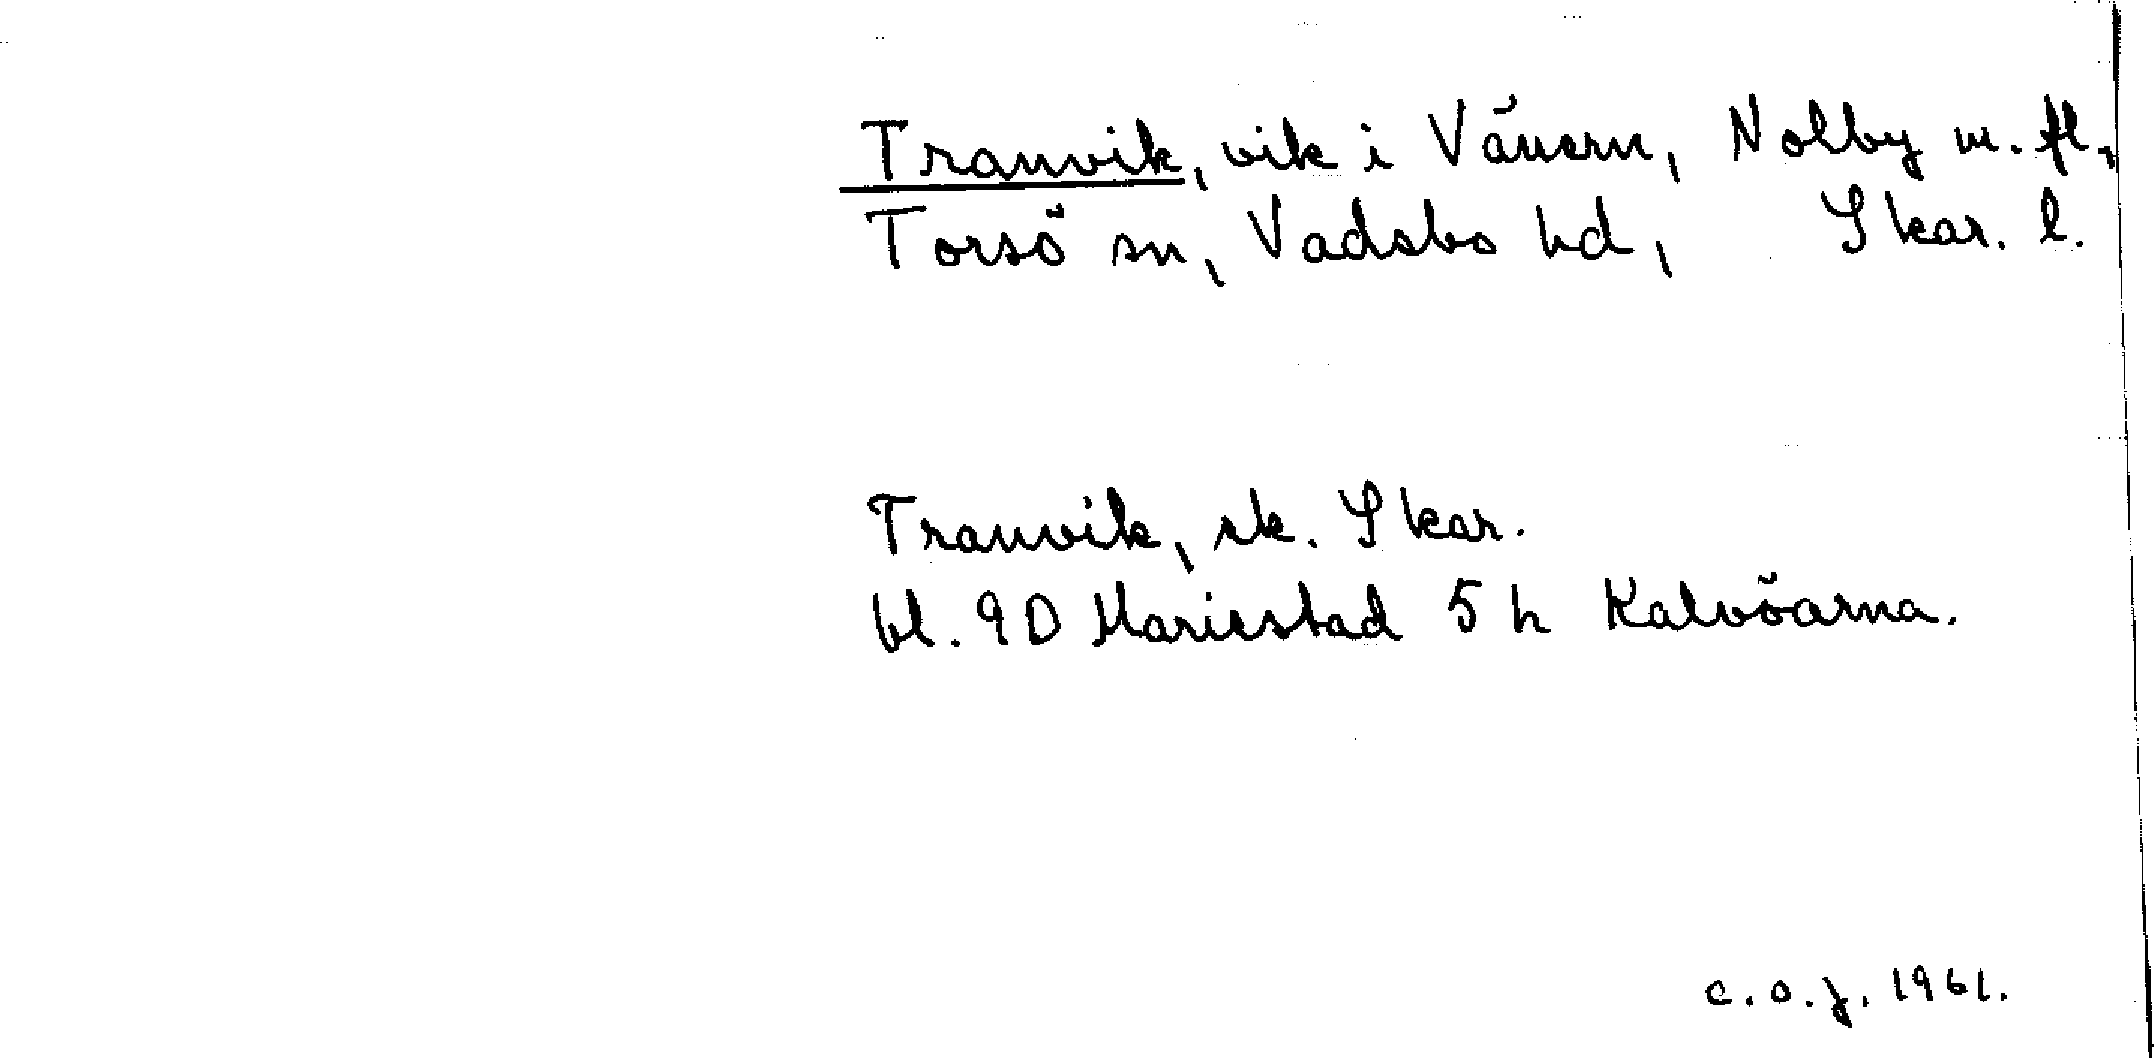 Tranvik, vik i Vänern, Nolby m. fl.,
Torsö sn, Vadsbo hd, Skar. l.
Tranvik, ek. Skar.
bl. 9D Mariestad 5 h Kalvöarna.
c. o. j. 1961.